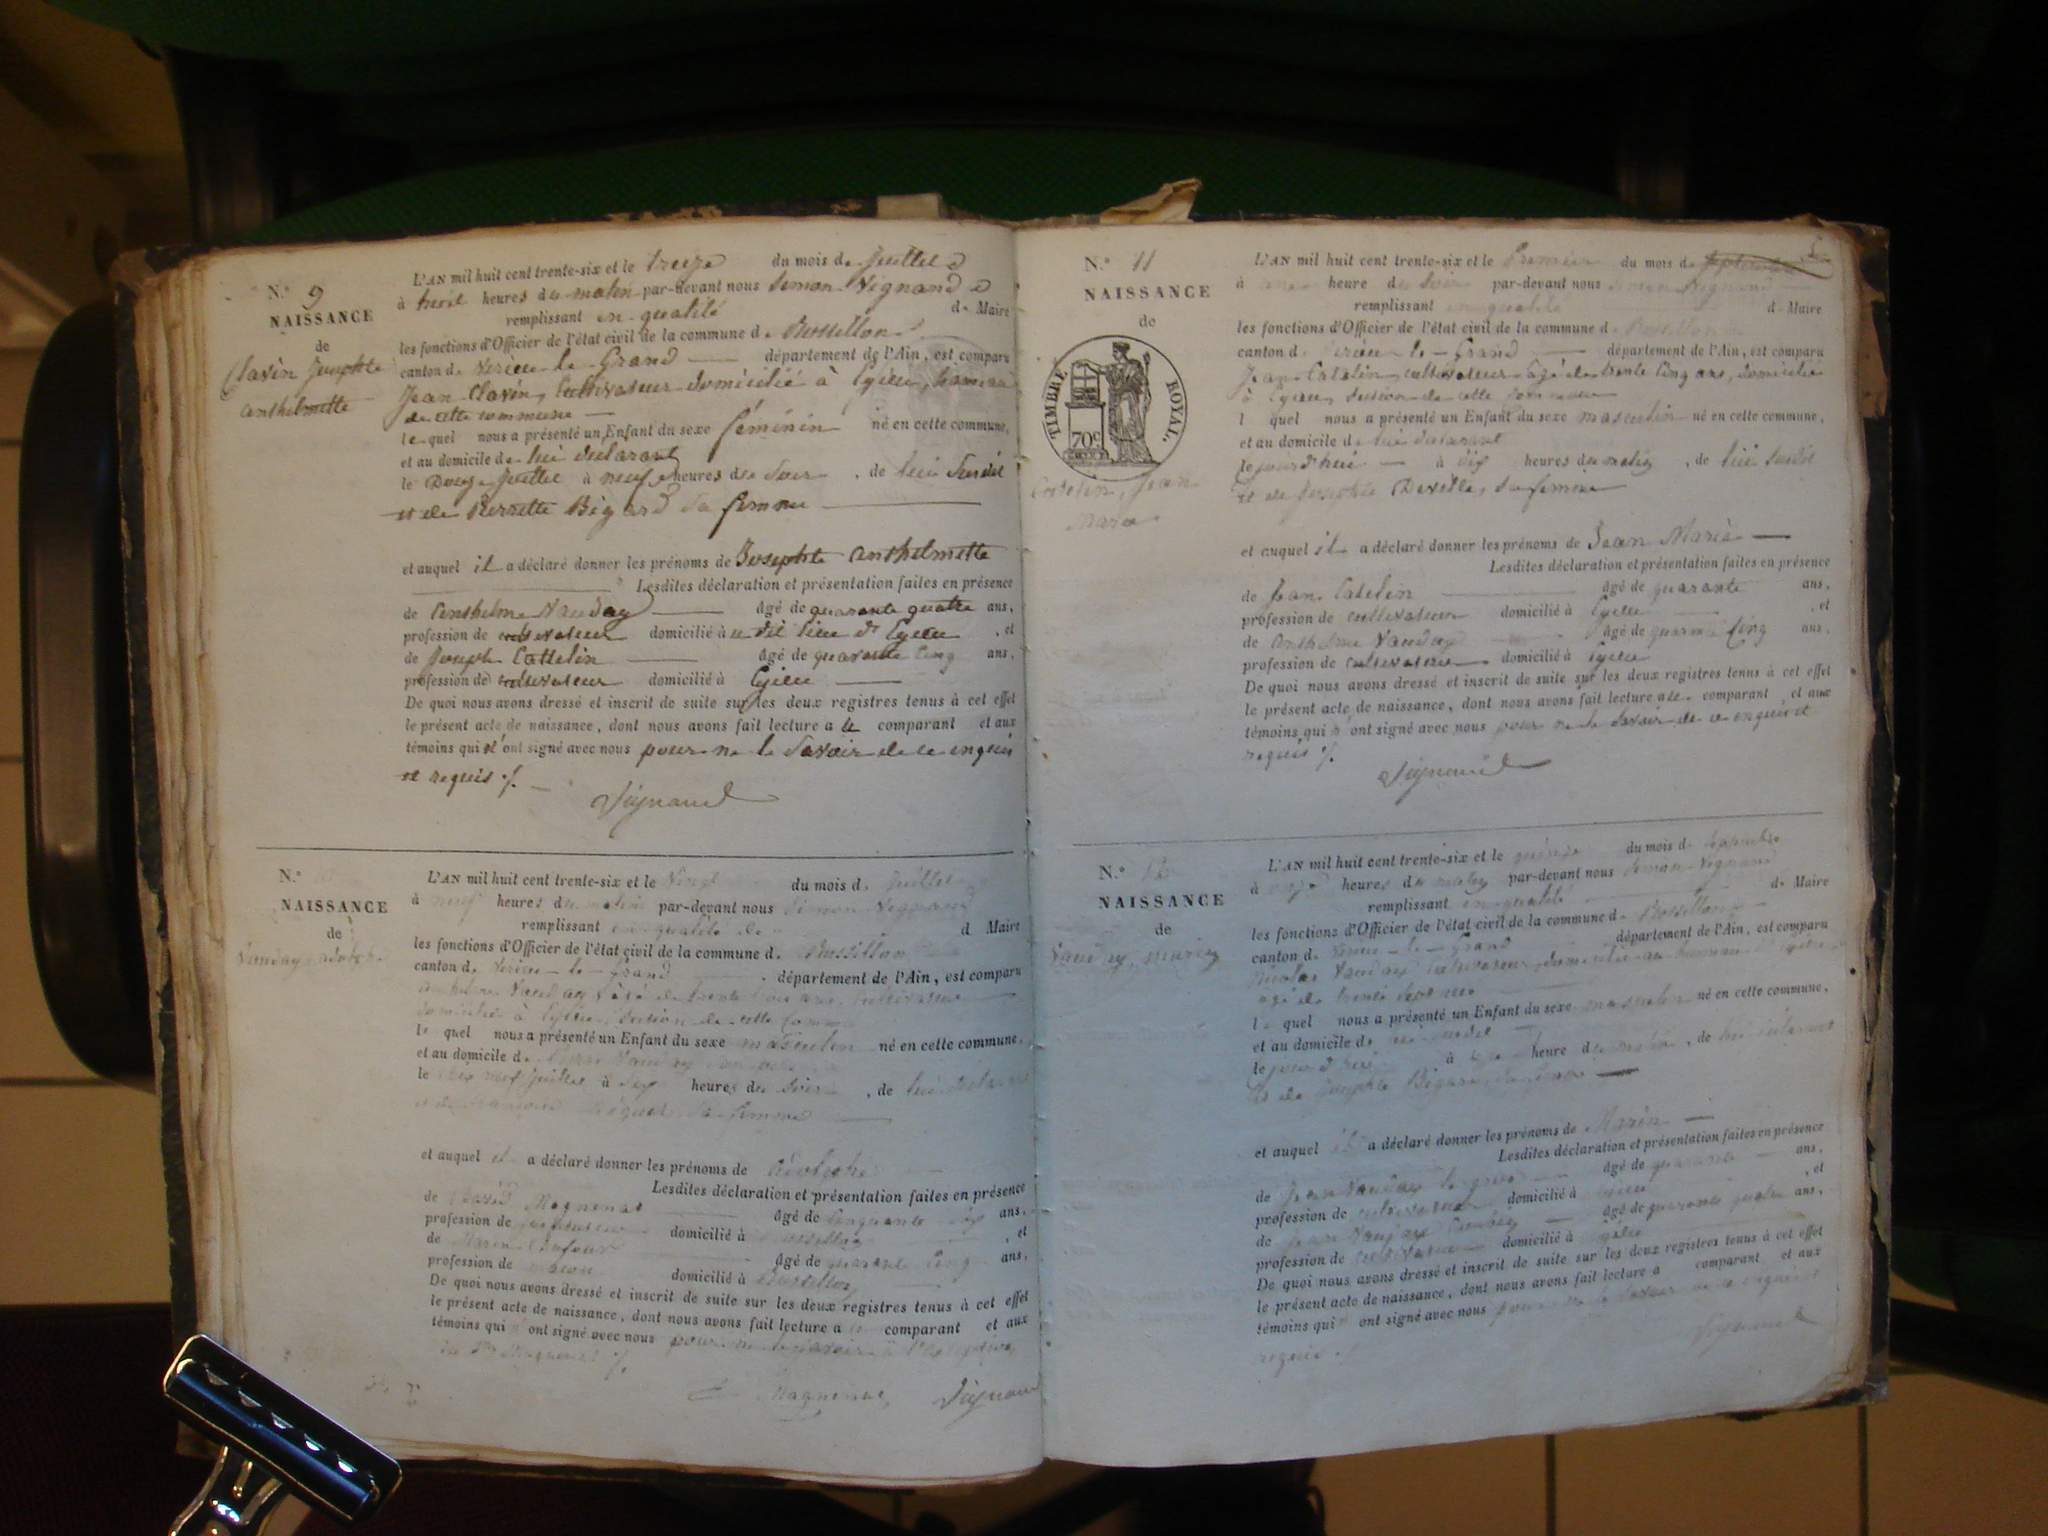 N.° 9
NAISSANCE
de
Clavin Josephte
anthelmette
L'AN mil huit cent trente-six et le treize du mois de Juillet
à huit heures du matin par-devant nous Simon Vignand
remplissant en qualité de Maire
les fonctions d'Officier de l'état civil de la commune de Rossillon
canton de Virieu le Grand département de l'Ain, est comparu
Jean Clavin, Cultivateur domicilié à Egieu, hameau
de cette commune
lequel nous a présenté un Enfant du sexe féminin né en cette commune,
et au domicile de lui déclarant
le Douze Juillet à neuf heures du Soir, de lui Susdit
et de Pierrette Bigard sa femme
et auquel il a déclaré donner les prénoms de Josephte anthelmette
Lesdites déclaration et présentation faites en présence
de anthelme Vauday âgé de quarante quatre ans,
profession de cultivateur domicilié à u dit lieu d'Egieu, et
de Joseph Cattelin âgé de quarante cinq ans,
profession de cultivateur domicilié à Egieu
De quoi nous avons dressé et inscrit de suite sur les deux registres tenus à cet effet
le présent acte de naissance, dont nous avons fait lecture a le comparant et aux
témoins qui n'ont signé avec nous pour ne le Savoir de ce enquis
et requis ./.
Vignand
N.°
NAISSANCE
de
Vauday adolphe
L'AN mil huit cent trente-six et le Vingt du mois de Juillet
à neuf heures du matin par-devant nous Simon Vignand
remplissant en qualité de Maire
les fonctions d'Officier de l'état civil de la commune de Rossillon
canton de Virieu-le-Grand département de l'Ain, est comparu
anthelme Vauday âgé de trente ans, Cultivateur
domicilié à Egieu, Section de cette Commune
lequel nous a présenté un Enfant du sexe masculin né en cette commune,
et au domicile de Vauday
le dix neuf juillet à heures du Soir, de lui déclarant
et de sa femme
et auquel il a déclaré donner les prénoms de
Lesdites déclaration et présentation faites en présence
de Magnenat âgé de Cinquante ans,
profession de domicilié à Rossillon, et
de Marin Dufour âgé de quarante Cinq ans,
profession de maçon domicilié à Rossillon
De quoi nous avons dressé et inscrit de suite sur les deux registres tenus à cet effet
le présent acte de naissance, dont nous avons fait lecture a le comparant et aux
témoins qui n'ont signé avec nous pour ne le Savoir à l'exception
du Magnenat ./.
Magnenat Vignand
N.° 11
NAISSANCE
de
TIMBRE ROYAL.
70c
Catelin, Jean
Marie
L'AN mil huit cent trente-six et le Premier du mois de Septembre
à une heure du Soir par-devant nous Simon Vignand
remplissant en qualité de Maire
les fonctions d'Officier de l'état civil de la commune de Rossillon
canton de Virieu-le-Grand département de l'Ain, est comparu
Jean Catelin, cultivateur âgé de trente Cinq ans, domicilié
à Egieu, Section de cette Commune
lequel nous a présenté un Enfant du sexe masculin né en cette commune,
et au domicile de lui déclarant
le jourd'hui à dix heures du matin, de lui Susdit
et de Josephte Deville, sa femme
et auquel il a déclaré donner les prénoms de Jean Marie
Lesdites déclaration et présentation faites en présence
de Jean Catelin âgé de quarante ans,
profession de cultivateur domicilié à Egieu, et
de Anthelme Vauday âgé de quarante Cinq ans,
profession de cultivateur domicilié à Egieu
De quoi nous avons dressé et inscrit de suite sur les deux registres tenus à cet effet
le présent acte de naissance, dont nous avons fait lecture a le comparant, et aux
témoins qui n'ont signé avec nous pour ne le Savoir de ce enquis et
requis ./.
Vignand
N.° 12
NAISSANCE
de
Vauday, marin
L'AN mil huit cent trente-six et le quinze du mois de Septembre
à onze heures du matin par-devant nous Simon Vignand
remplissant en qualité de Maire
les fonctions d'Officier de l'état civil de la commune de Rossillon
canton de Virieu-le-Grand département de l'Ain, est comparu
Nicolas Vauday Cultivateur, domicilié au hameau d'Egieu
âgé de trente
lequel nous a présenté un Enfant du sexe masculin né en cette commune,
et au domicile de
le jourd'hui à heure du matin, de lui déclarant
et de Josephte Bigard, sa femme
et auquel il a déclaré donner les prénoms de Marin
Lesdites déclaration et présentation faites en présence
de Jean Vauday le gros âgé de quarante ans,
profession de cultivateur domicilié à Egieu, et
de Jean Vauday âgé de quarante quatre ans,
profession de cultivateur domicilié à Egieu
De quoi nous avons dressé et inscrit de suite sur les deux registres tenus à cet effet
le présent acte de naissance, dont nous avons fait lecture a comparant et aux
témoins qui n'ont signé avec nous pour ne le Savoir de ce enquis et
requis ./.
Vignand